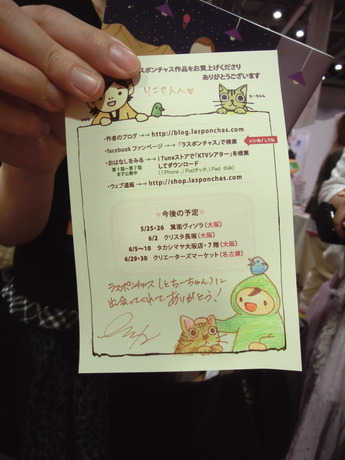 ラスポンチャス作品をお買上げくださり
ありがとうございます
りこさんへ
ちーちゃん
・作者のブログ →→ http://blog.lasponchas.com
・facebook ファンページ →→「ラスポンチャス」で検索 いいね!してね
・おはなしをみる →→ iTuneストアで「KTVシアター」を検索
第1話~第7話
まで公開中
してダウンロード
(iPhone、iPodタッチ、iPad のみ)
・ウェブ通販 →→ http://shop.lasponchas.com
※今後の予定※
5/25・26 箕面ヴィソラ(大阪)
6/2 クリスタ長堀(大阪)
6/5~10 タカシマヤ大阪店・7階(大阪)
6/29・30 クリエーターズマーケット(名古屋)
ラスポンチャス(とちーちゃん)に
出会ってくれてありがとう!